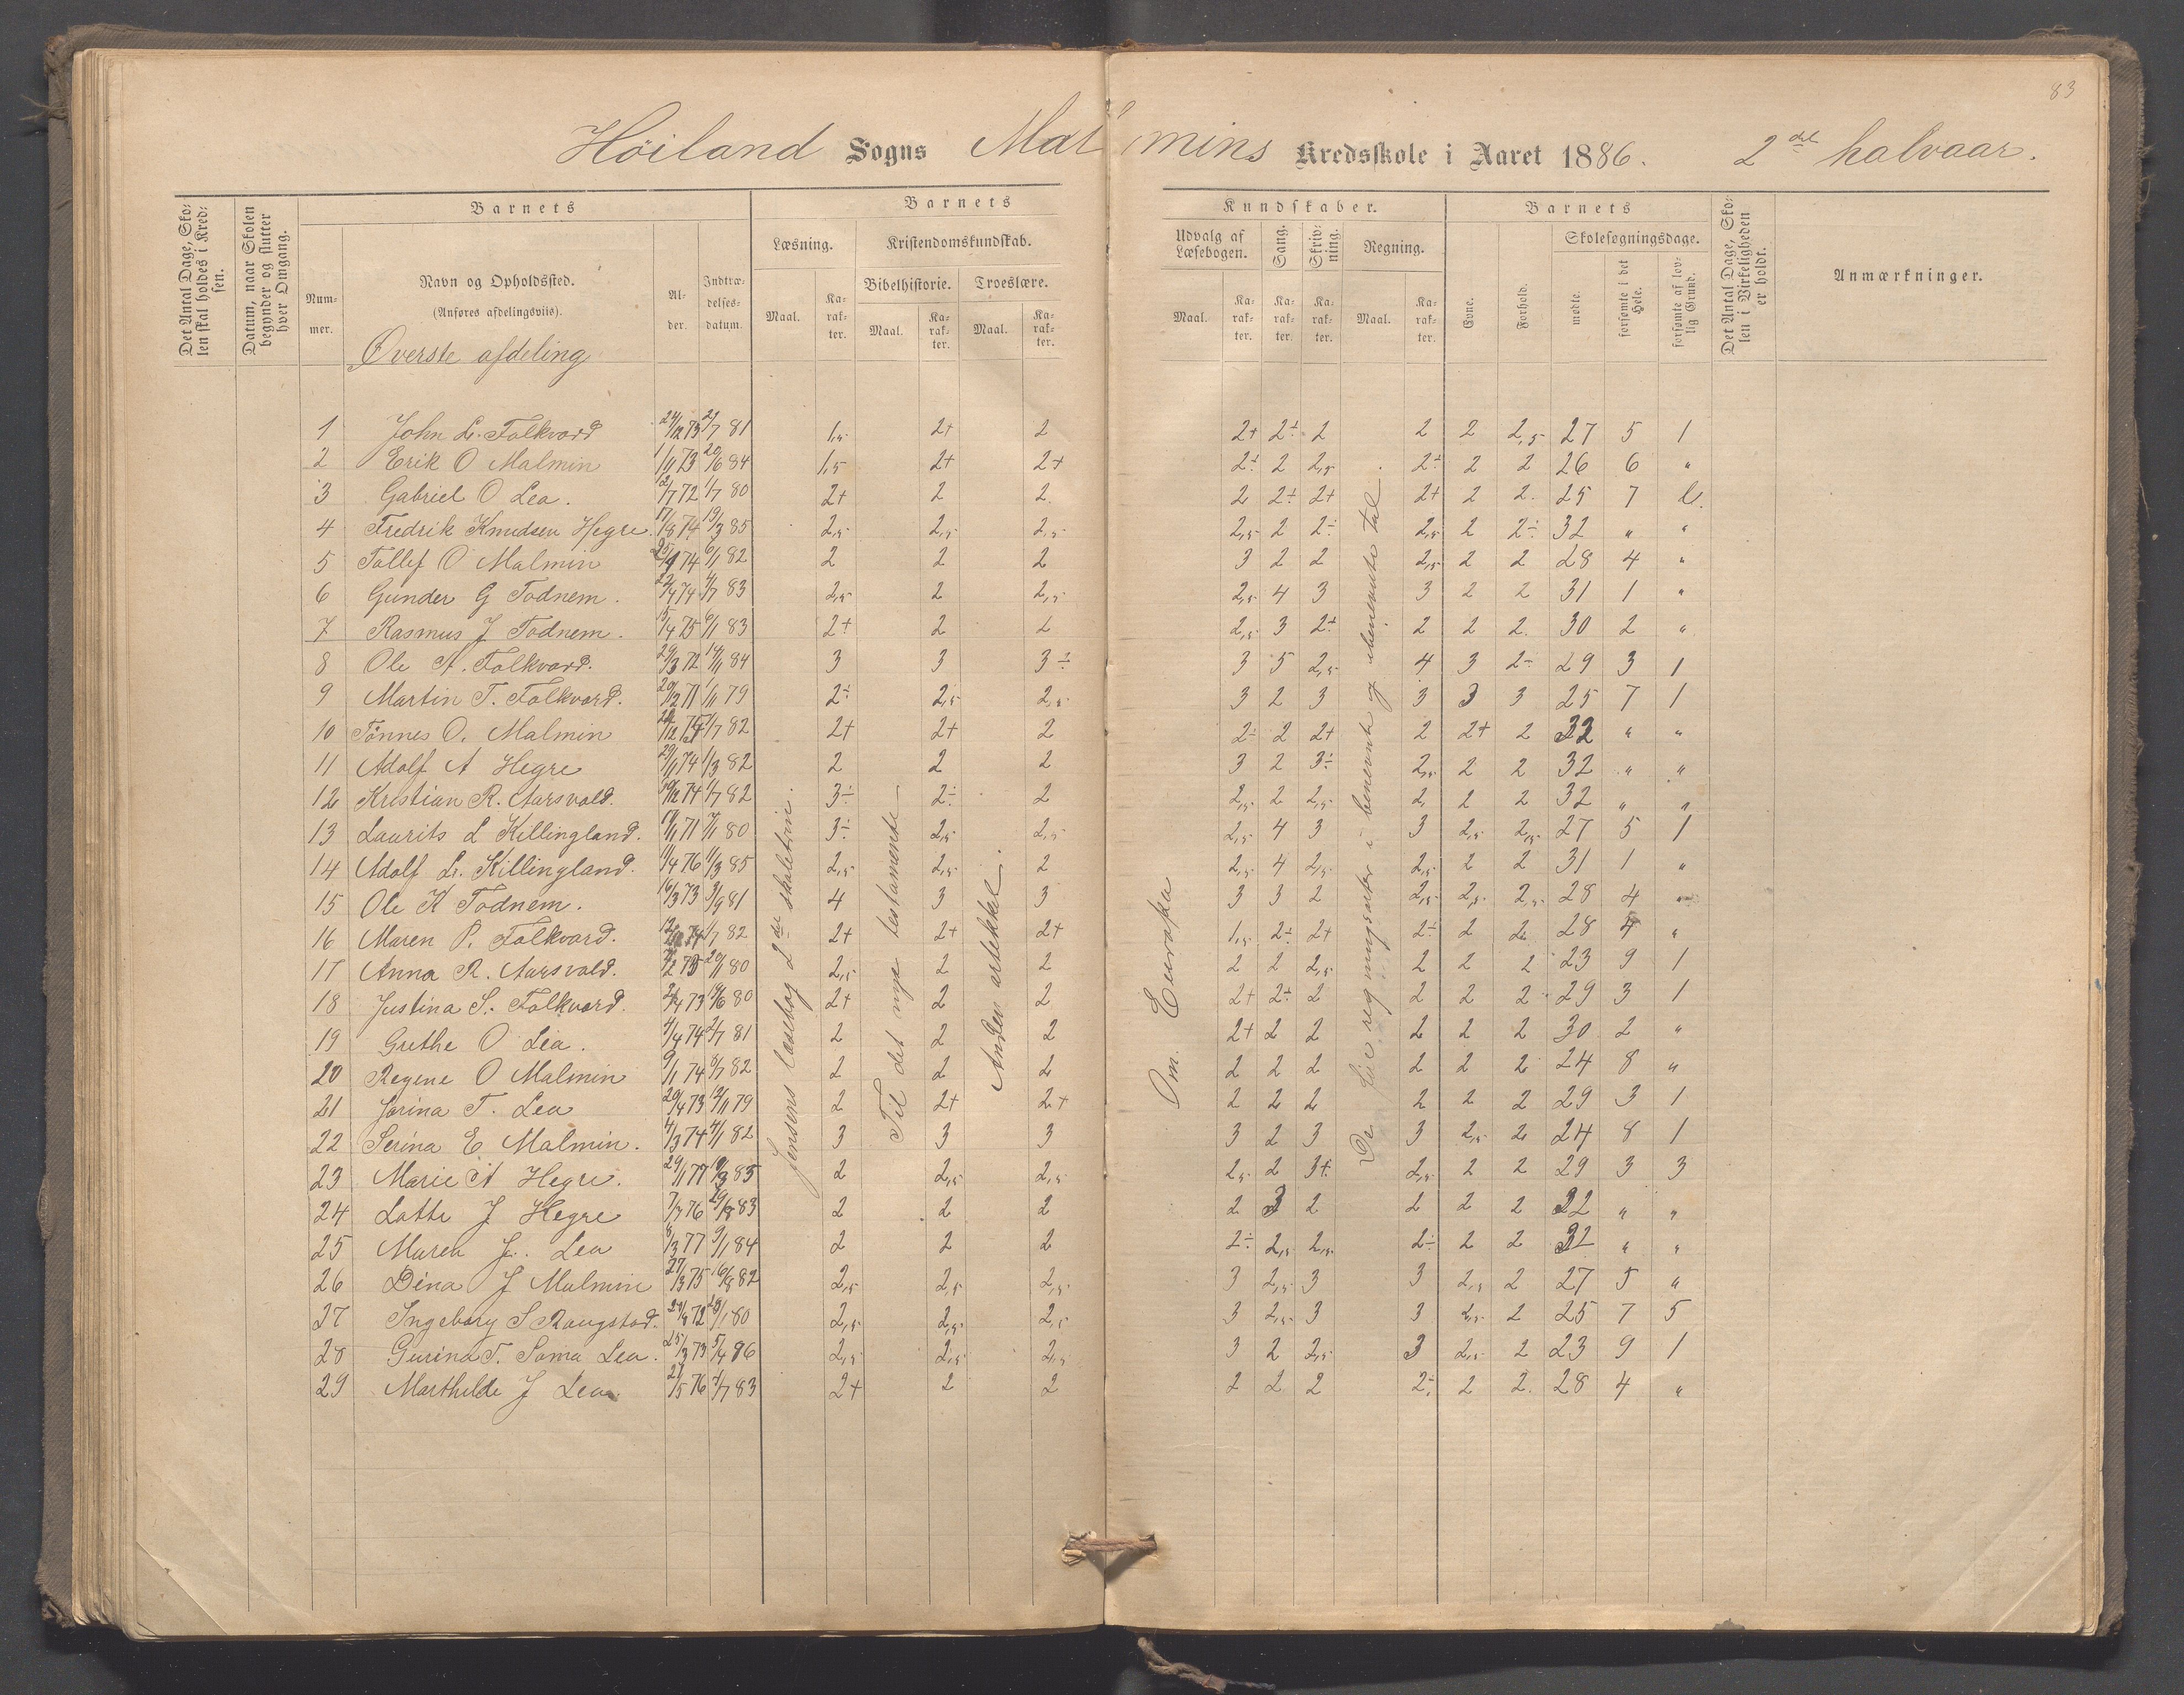 83
Höiland Sogns Malmins Kredsskole i Aaret 1886. 2det halvaar.
Det Antal Dage, Skolen skal holdes i Kredsen.
Datum, naar Skolen begynder og slutter hver Omgang.
Barnets
Nummer.
Navn og Opholdssted.
(Anføres afdelingsviis).
Alder.
Indtrædelsesdatum.
Barnets Kundskaber.
Læsning.
Maal. Karakter.
Kristendomskundskab.
Bibelhistorie. Troeslære.
Maal. Karakter. Maal. Karakter.
Udvalg af Læsebogen.
Maal. Karakter.
Sang. Karakter.
Skrivning. Karakter.
Regning.
Maal. Karakter.
Barnets
Evne. Forhold.
Skolesøgningsdage.
mødte. forsømte i det Hele. forsømte af lovlig Grund.
Det Antal Dage, Skolen i Virkeligheden er holdt.
Anmærkninger.
Øverste afdeling
Jensens læsebog 2det skoletrin.
Til det nye testamente
Anden artikkel.
Om Europa
De fire regningsarter i benevnte og ubenevnte tal
1 John L. Folkvord 24/12 73 2/7 81 1,5 2+ 2 2+ 2÷ 2 2 2 2,5 27 5 1
2 Erik O Malmin 1/11 73 20/6 84 1,5 2+ 2+ 2÷ 2 2,5 2÷ 2 2 26 6 "
3 Gabriel O Lea. 12/7 72 1/7 80 2+ 2 2 2 2÷ 2+ 2+ 2 2 25 7
4 Fredrik Knudsen Hegre. 17/8 74 19/3 85 2,5 2,5 2,5 2,5 2 2÷ 2,5 2 2÷ 32 " "
5 Tollef O Malmin 74 6/1 82 2 2 2 3 2 2 2,5 2 2 28 4 "
6 Gunder G Todnem. 74 83 2,5 2 2,5 2,5 4 3 3 2 2 31 1 "
7 Rasmus J Todnem. 15/4 75 6/1 83 2+ 2 2 2,5 3 2÷ 2 2 2 30 2 "
8 Ole A. Folkvord. 29/3 72 14/1 84 3 3 3÷ 3 5 2,5 4 3 2÷ 29 3 1
9 Martin T. Folkvord. 71 1/11 79 2÷ 2,5 2,5 3 2 3 3 3 3 25 7 1
10 Tönnes O. Malmin 82 2+ 2+ 2 2÷ 2 2+ 2 2+ 2 32 " "
11 Adolf A Hegre 29/11 74 1/3 82 2 2 2 3 2 3÷ 2,5 2 2 32 " "
12 Kristian R. Aarsvold. 74 1/7 82 3÷ 2÷ 2 2,5 2 2,5 2 2 2 32 " "
13 Laurits L Killingland. 71 80 3÷ 2,5 2,5 2,5 4 3 3 2,5 2,5 27 5 1
14 Adolf L. Killingland. 76 85 2,5 2,5 2 2,5 4 2,5 2,5 2 2 31 1 "
15 Ole K Todnem. 16/3 73 3/9 81 4 3 3 3 3 2 2,5 2,5 2,5 28 4 "
16 Maren P. Folkvord. 74 1/7 82 2+ 2+ 2+ 1,5 2÷ 2+ 2÷ 2 2 28 4 "
17 Anna R. Aarsvold. 73 80 2,5 2 2 2 2 2,5 2 2 2 23 9 1
18 Justina S. Folkvord. 73 80 2+ 2 2 2+ 2÷ 2 2 2 2 29 3 1
19 Grethe O Lea. 4/4 74 2/7 81 2 2 2 2+ 2 2 2 2 2 30 2 "
20 Regine O Malmin 9/1 74 82 2 2 2 2 2 2 2 2 2 24 8 "
21 Jorina T. Lea 20/4 73 79 2 2+ 2+ 2 2 2 2 2 2 29 3 1
22 Serina E. Malmin. 4/3 74 4/1 82 3 3 3 3 2 3 3 2,5 2 24 8 1
23 Marie A Hegre. 29/1 77 85 2 2,5 2,5 2,5 2 3+ 2,5 2 2 29 3 3
24 Lotte J Hegre 76 83 2 2 2 2 3 2 2 2 2 32 " "
25 Maren J. Lea 8/3 77 9/1 84 2 2 2 2÷ 2,5 2,5 2÷ 2 2 32 " "
26 Dina J Malmin 27/3 75 82 2,5 2,5 2,5 3 2,5 3 3 2,5 2 27 5 "
27 Ingeborg S Raugstad. 72 80 2,5 2,5 2,5 3 2,5 3 3 2,5 2 25 7 5
28 Gurina T. Soma Lea. 25/3 73 5/4 86 2,5 2,5 2,5 3 2 2,5 3 2,5 2 23 9 1
29 Marthilde J Lea 76 83 2+ 2 2 2 2 2 2÷ 2 2 28 4 "